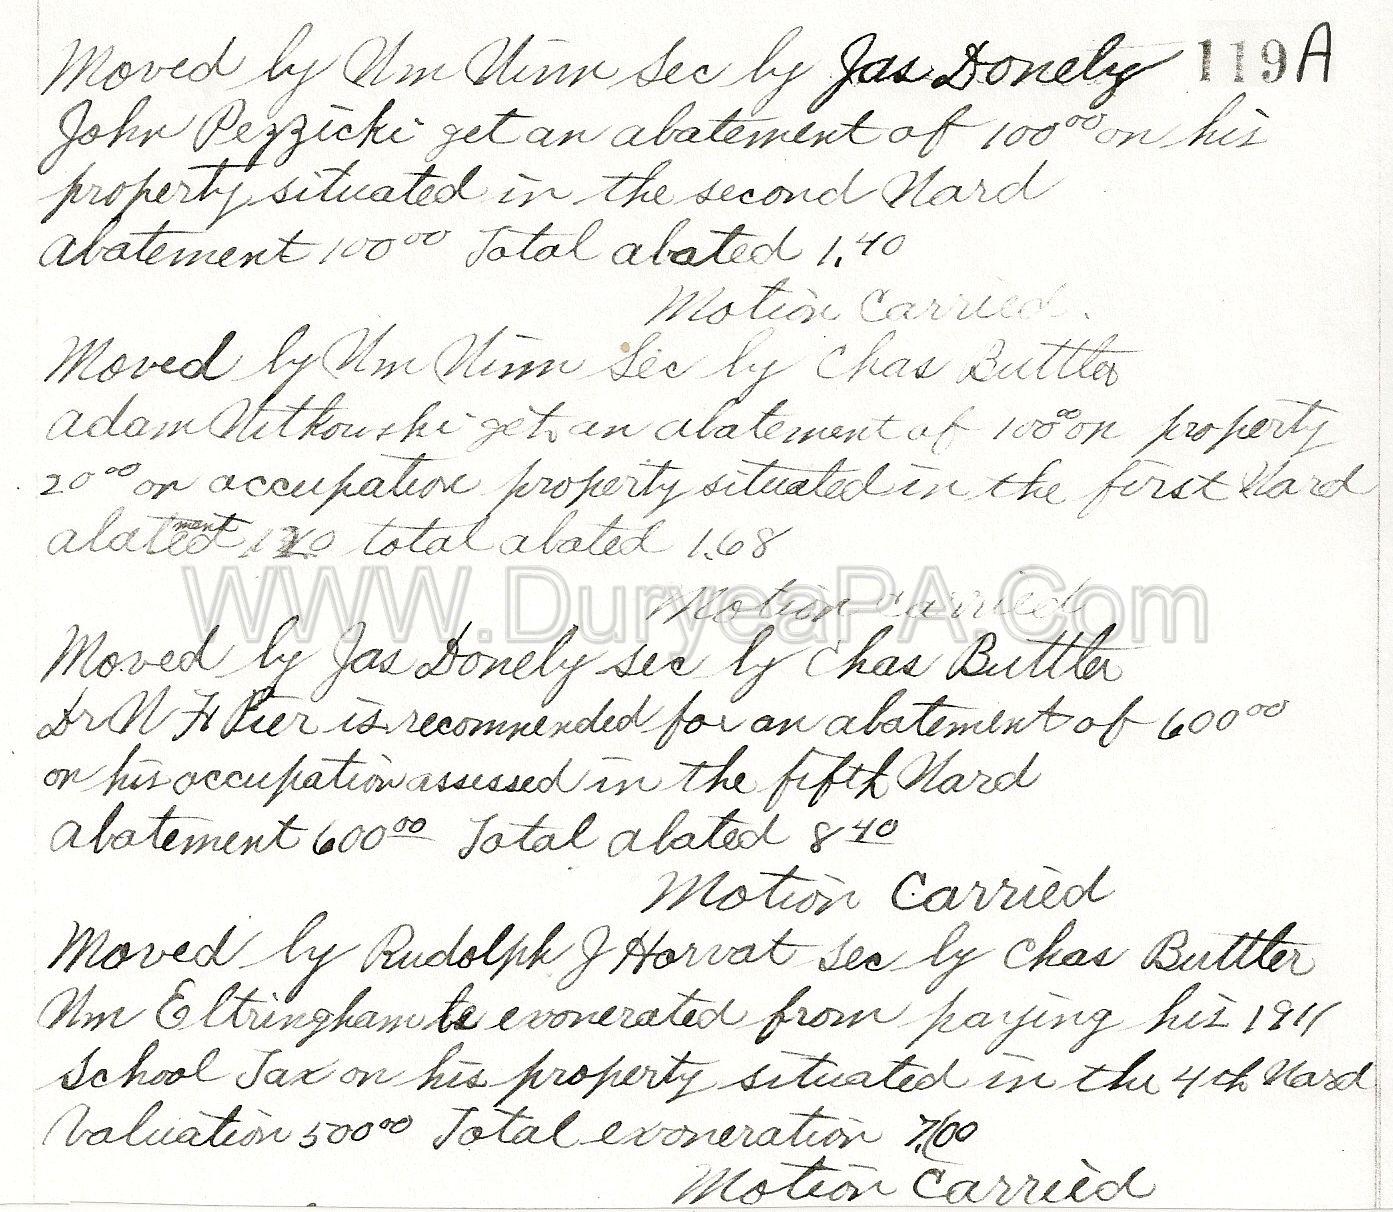 Moved by Wm Winn Sec by Jas Donely 119A
John Pezzicki get an abatement of 100⁰⁰ on his
property situated in the second Ward
abatement 100⁰⁰ Total abated 1.40
Motion Carried.
Moved by Wm Winn Sec by Chas Buttler
Adam Witkowski get an abatement of 100⁰⁰ on property
20⁰⁰ on occupation property situated in the first Ward
abatement total abated 1.68
WWW.DuryeaPA.Com
Motion Carried
Moved by Jas Donely sec by Chas Buttler
Dr N H Pier is recommended for an abatement of 600⁰⁰
on his occupation assessed in the fifth Ward
Abatement 600⁰⁰ Total abated 8⁴⁰
Motion Carried
Moved by Rudolph J Horvat sec by Chas Buttler
Wm Eltringham be exonerated from paying his 1911
School Tax on his property situated in the 4th Ward
Valuation 500⁰⁰ Total exoneration 7.00
Motion Carried